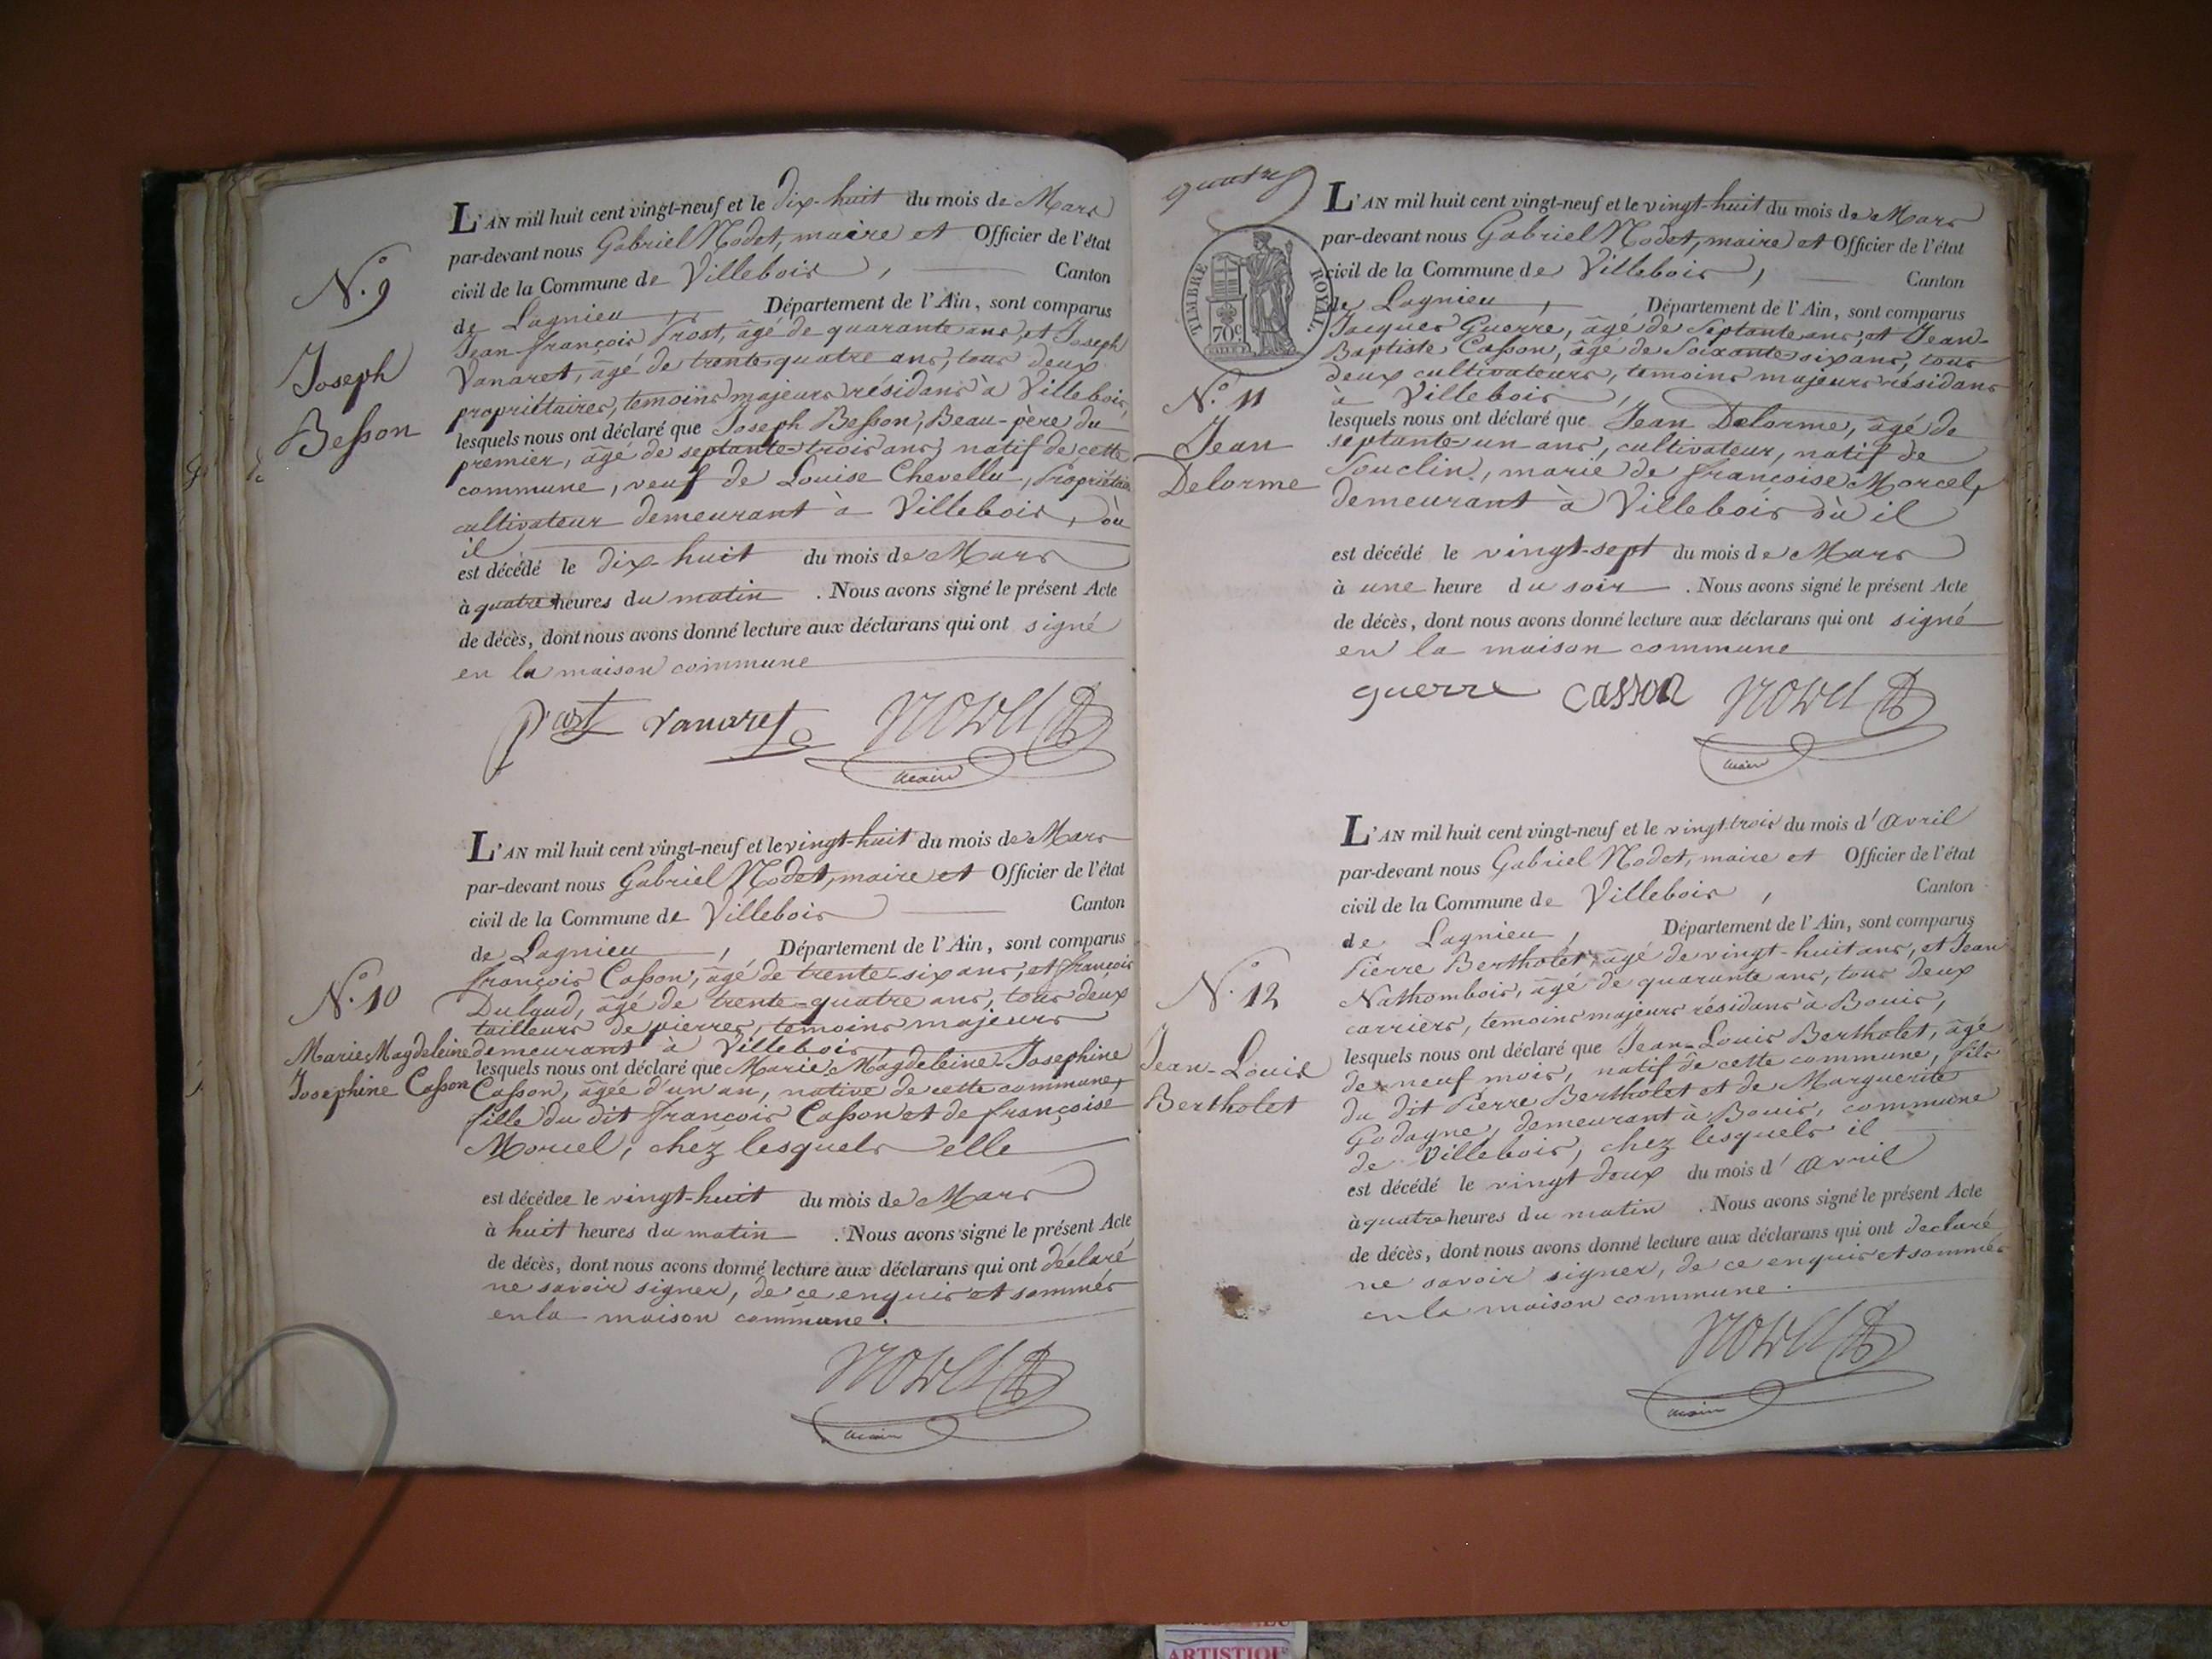 N.° 9
Joseph
Besson
L'AN mil huit cent vingt-neuf et le dix-huit du mois de Mars
par-devant nous Gabriel Nodet, maire et Officier de l'état
civil de la Commune de Villebois, Canton
de Lagnieu, Département de l'Ain, sont comparus
Jean-françois Prost, âgé de quarante ans, et Joseph
Vanaret, âgé de trente-quatre ans, tous deux
propriétaires, temoins majeurs résidans à Villebois,
lesquels nous ont déclaré que Joseph Besson, Beau-père du
premier, âgé de septante-trois ans, natif de cette
commune, veuf de Louise Chevellu, Propriétaire
cultivateur demeurant à Villebois, où
il
est décédé le dix-huit du mois de Mars
à quatre heures du matin. Nous avons signé le présent Acte
de décès, dont nous avons donné lecture aux déclarans qui ont signé
en la maison commune
Prost Vanaret Nodet
maire
N.° 10
Marie Magdeleine
Josephine Casson
L'AN mil huit cent vingt-neuf et le vingt-huit du mois de Mars
par-devant nous Gabriel Nodet, maire et Officier de l'état
civil de la Commune de Villebois Canton
de Lagnieu, Département de l'Ain, sont comparus
françois Casson, âgé de trente-six ans, et françois
Dulaud, âgé de trente-quatre ans, tous deux
tailleurs de pierres, temoins majeurs
demeurant à Villebois,
lesquels nous ont déclaré que Marie Magdeleine-Josephine
Casson, âgée d'un an, native de cette commune,
fille du dit françois Casson et de françoise
Moruel, chez lesquels elle
est décédée le vingt-huit du mois de Mars
à huit heures du matin. Nous avons signé le présent Acte
de décès, dont nous avons donné lecture aux déclarans qui ont déclaré
ne savoir signer, de ce enquis et sommés
en la maison commune.
Nodet
maire
quatre
TIMBRE ROYAL.
70c
N.° 11
Jean
Delorme
L'AN mil huit cent vingt-neuf et le vingt-huit du mois de Mars
par-devant nous Gabriel Nodet, maire et Officier de l'état
civil de la Commune de Villebois, Canton
de Lagnieu, Département de l'Ain, sont comparus
Jacques Guerre, âgé de Septante ans, et Jean-
Baptiste Casson, âgé de Soixante-six ans, tous
deux cultivateurs, temoins majeurs résidans
à Villebois,
lesquels nous ont déclaré que Jean Delorme, âgé de
septante-un ans, cultivateur, natif de
Souclin, marié de françoise Morcel,
demeurant à Villebois où il
est décédé le vingt-sept du mois de Mars
à une heure du soir. Nous avons signé le présent Acte
de décès, dont nous avons donné lecture aux déclarans qui ont signé
en la maison commune
guerre casson Nodet
maire
N.° 12
Jean-Louis
Bertholet
L'AN mil huit cent vingt-neuf et le vingt-trois du mois d'avril
par-devant nous Gabriel Nodet, maire et Officier de l'état
civil de la Commune de Villebois, Canton
de Lagnieu, Département de l'Ain, sont comparus
Pierre Bertholet, âgé de vingt-huit ans, et Jean
Nathombois, âgé de quarante ans, tous deux
carriers, temoins majeurs résidans à Bouis,
lesquels nous ont déclaré que Jean-Louis Bertholet, âgé
de neuf mois, natif de cette commune, fils
du dit Pierre Bertholet et de Marguerite
Godagne, demeurant à Bouis, commune
de Villebois, chez lesquels il
est décédé le vingt deux du mois d'avril
à quatre heures du matin. Nous avons signé le présent Acte
de décès, dont nous avons donné lecture aux déclarans qui ont declaré
ne savoir signer, de ce enquis et sommés
en la maison commune.
Nodet
maire
ARTISTIQ